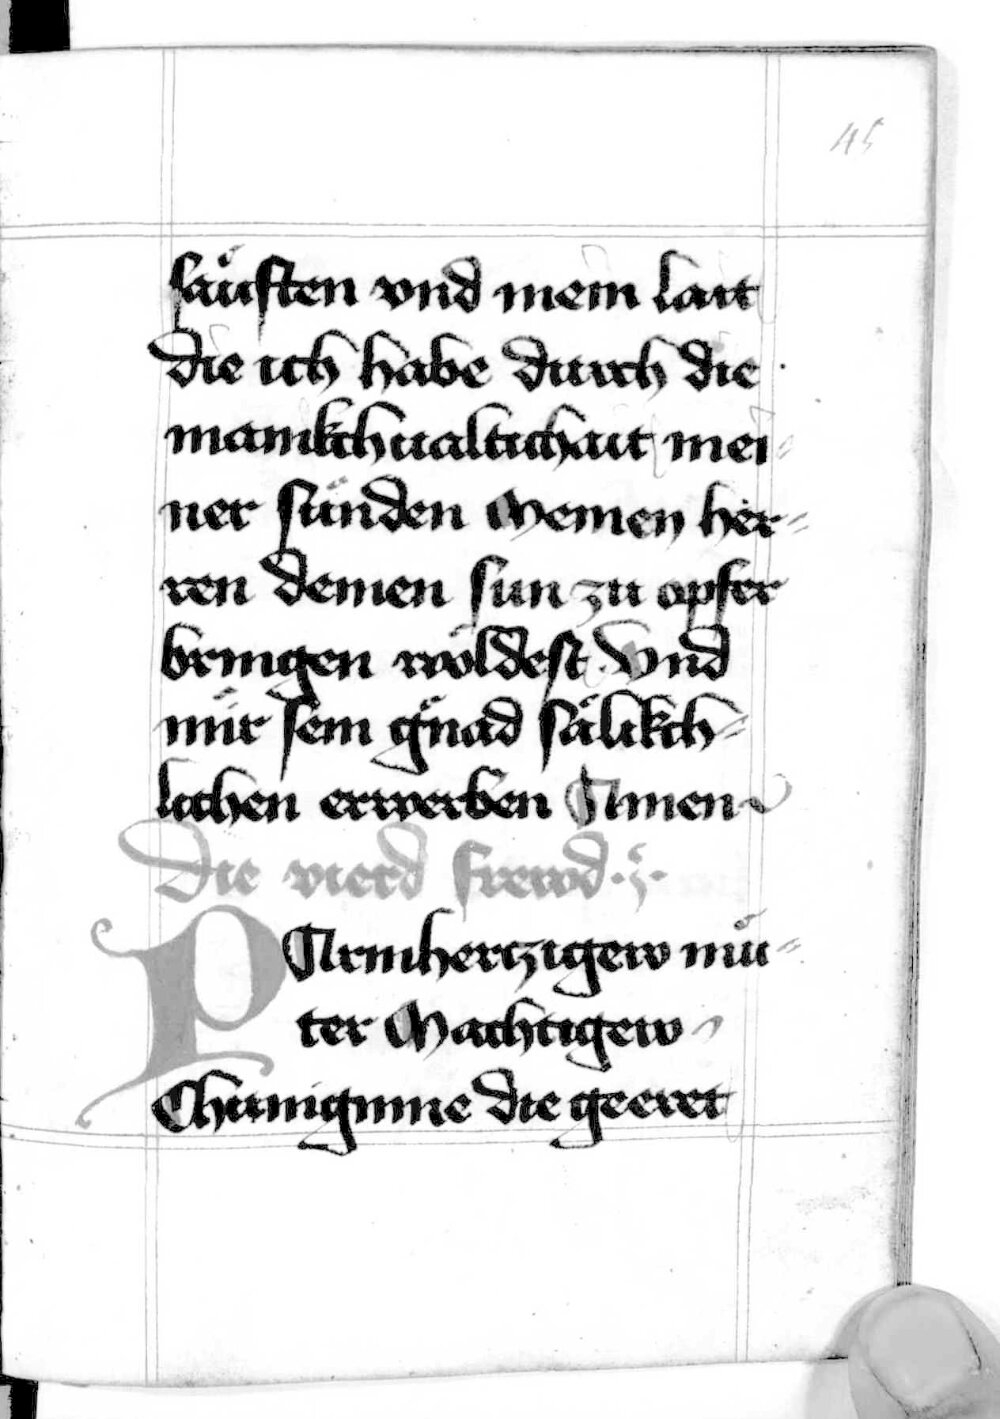 45
säuften vnd mein lait
die ich habe durch die
manikchualtichait mei-
ner sünden Meinen her-
ren deinen sun zu opfer
bringen wöldest Vnd
mir sein gnad sälikch-
lichen erwerben Amen
Die vierd frewd
PArmhertzigew mu-
ter Machtigew
Chuniginne die geeret